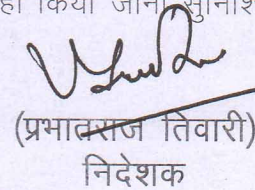 हो किया जाना सुनिश्
(प्रभातराज तिवारी)
निदेशक